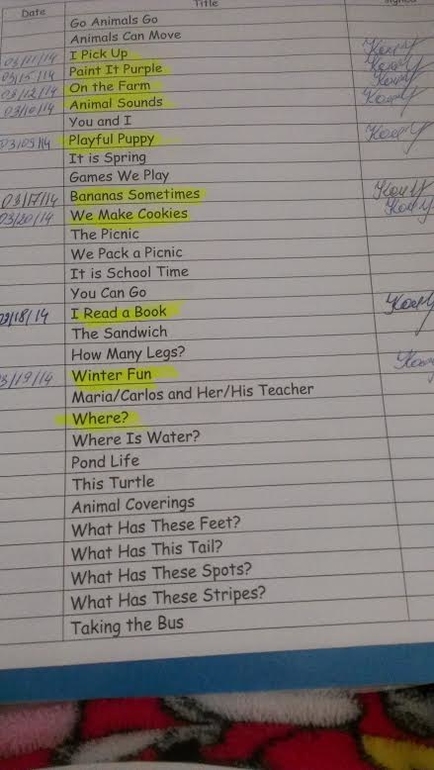 Date Title Signed
Go Animals Go
Animals Can Move
03/11/14 I Pick Up
03/15/14 Paint It Purple
03/12/14 On the Farm
03/10/14 Animal Sounds
You and I
03/05/14 Playful Puppy
It is Spring
Games We Play
03/17/14 Bananas Sometimes
03/20/14 We Make Cookies
The Picnic
We Pack a Picnic
It is School Time
You Can Go
/18/14 I Read a Book
The Sandwich
How Many Legs?
3/19/14 Winter Fun
Maria/Carlos and Her/His Teacher
Where?
Where Is Water?
Pond Life
This Turtle
Animal Coverings
What Has These Feet?
What Has This Tail?
What Has These Spots?
What Has These Stripes?
Taking the Bus